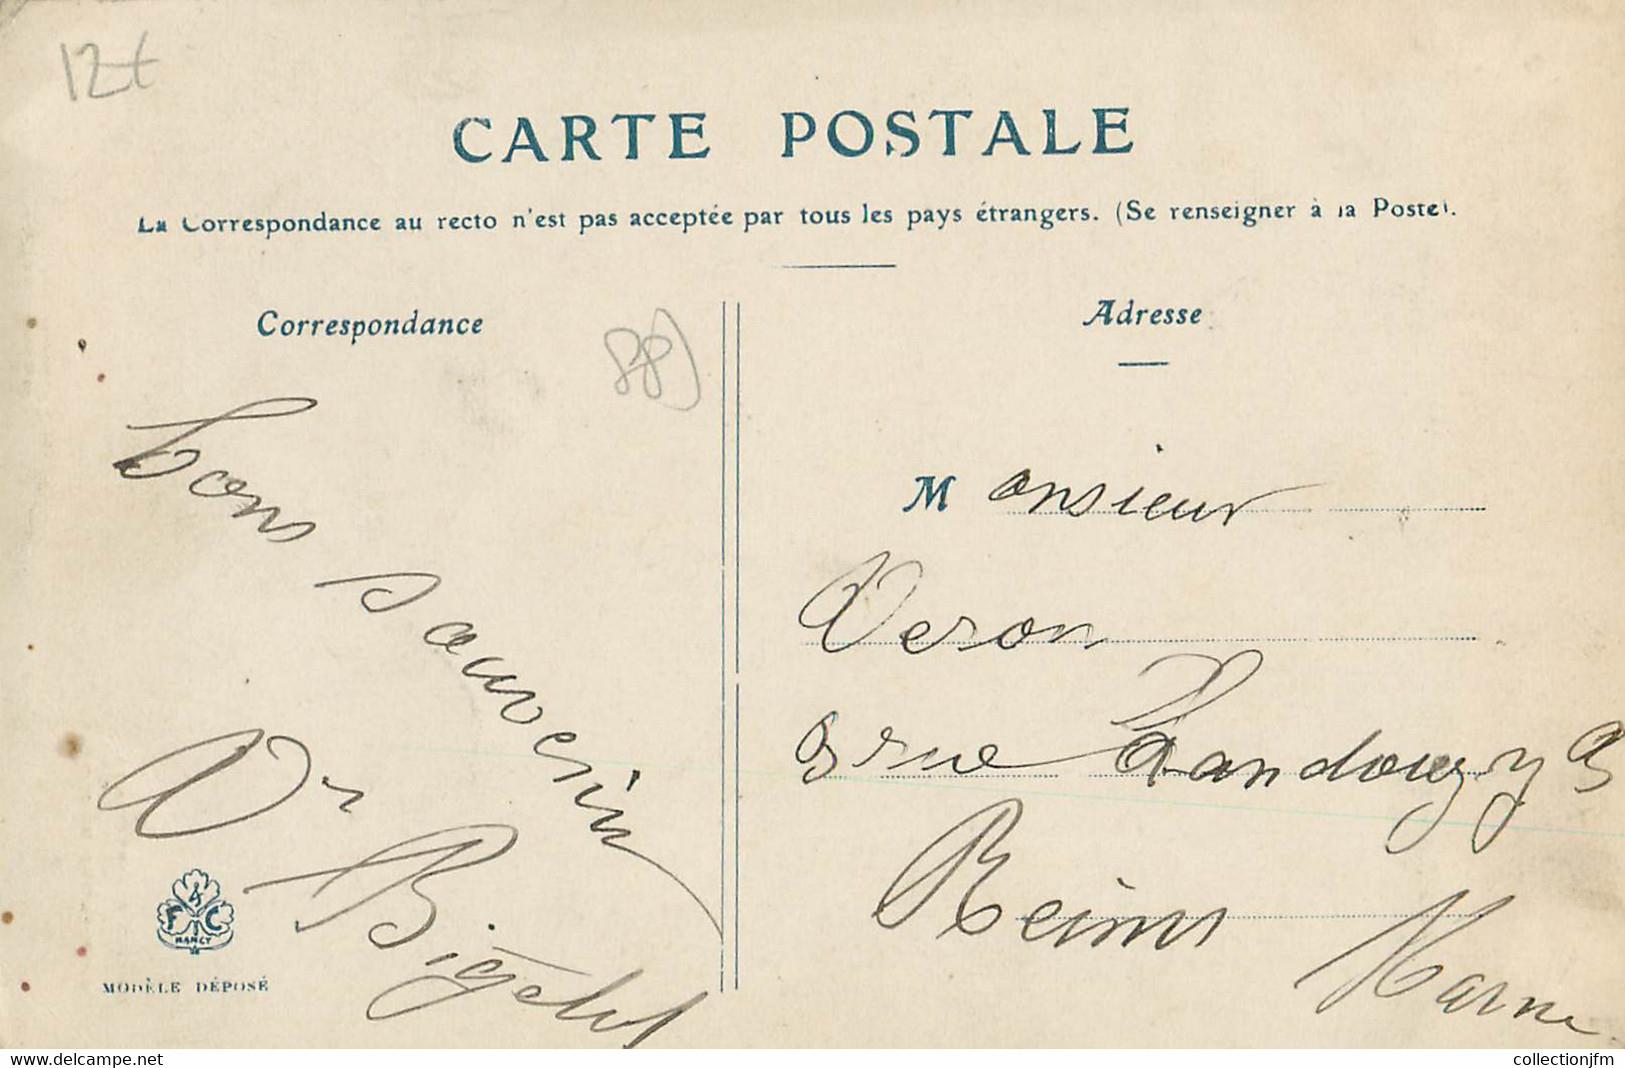 12€
CARTE POSTALE
La Correspondance au recto n'est pas acceptée par tous les pays étrangers. (Se renseigner à la Poste).
Correspondance
88)
bons souvenir
Vr
MODÈLE DÉPOSÉ
F A C
NANCY
Adresse
Monsieur
Veron
rue Landouzy
Reims
Marne
delcampe.net
collectionjfm